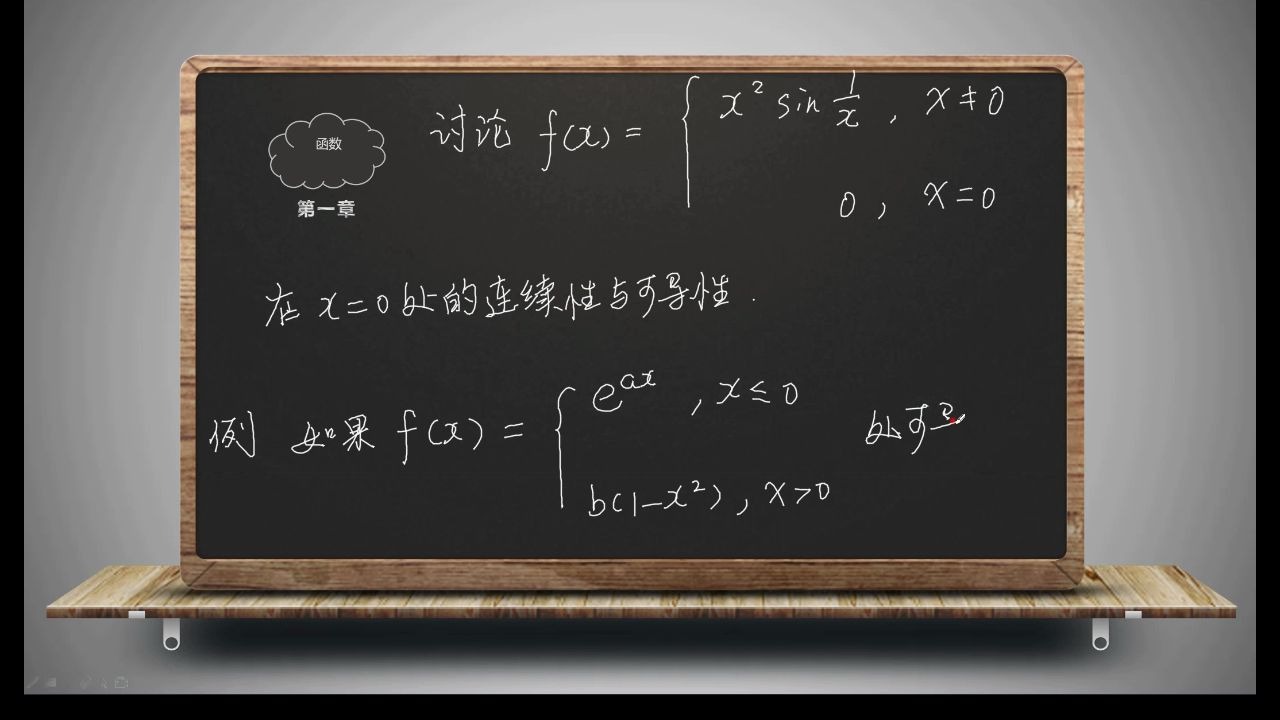 函数
第一章
讨论 f(x) = { x² sin 1/x , x ≠ 0
0 , x = 0
在 x = 0 处的连续性与可导性 .
例 如果 f(x) = { e^{ax} , x ≤ 0
b(1-x²) , x > 0
处可